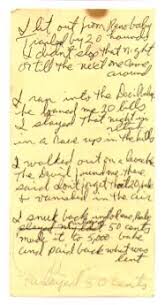 I lit out from Reno baby
I was trailed by 20 hounds
I didn't stop that night
or till the next one came
around
I ran into the Devil, baby
he loaned me 20 bills
I stayed that night
in a cave up in the hills
I walked out on
the Devil found me there
said don't forget
& vanished in the air
I snuck back into Reno, baby
50 cents
made it to 5,000
and paid back what was
lent
50 cents